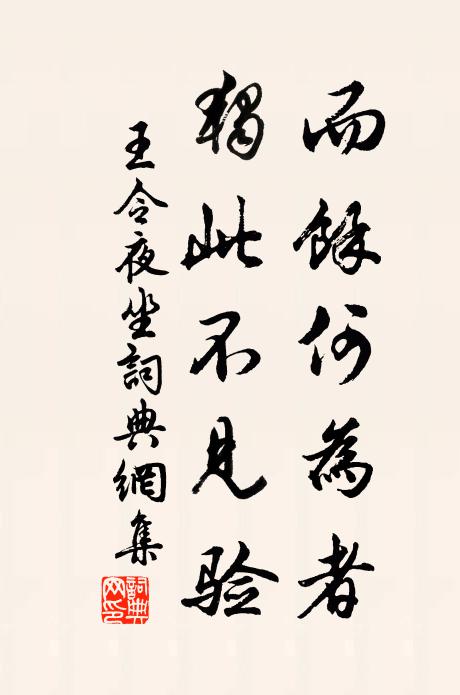 而餘何為者
獨此不見验
王令夜坐詞典網集
詞典网印